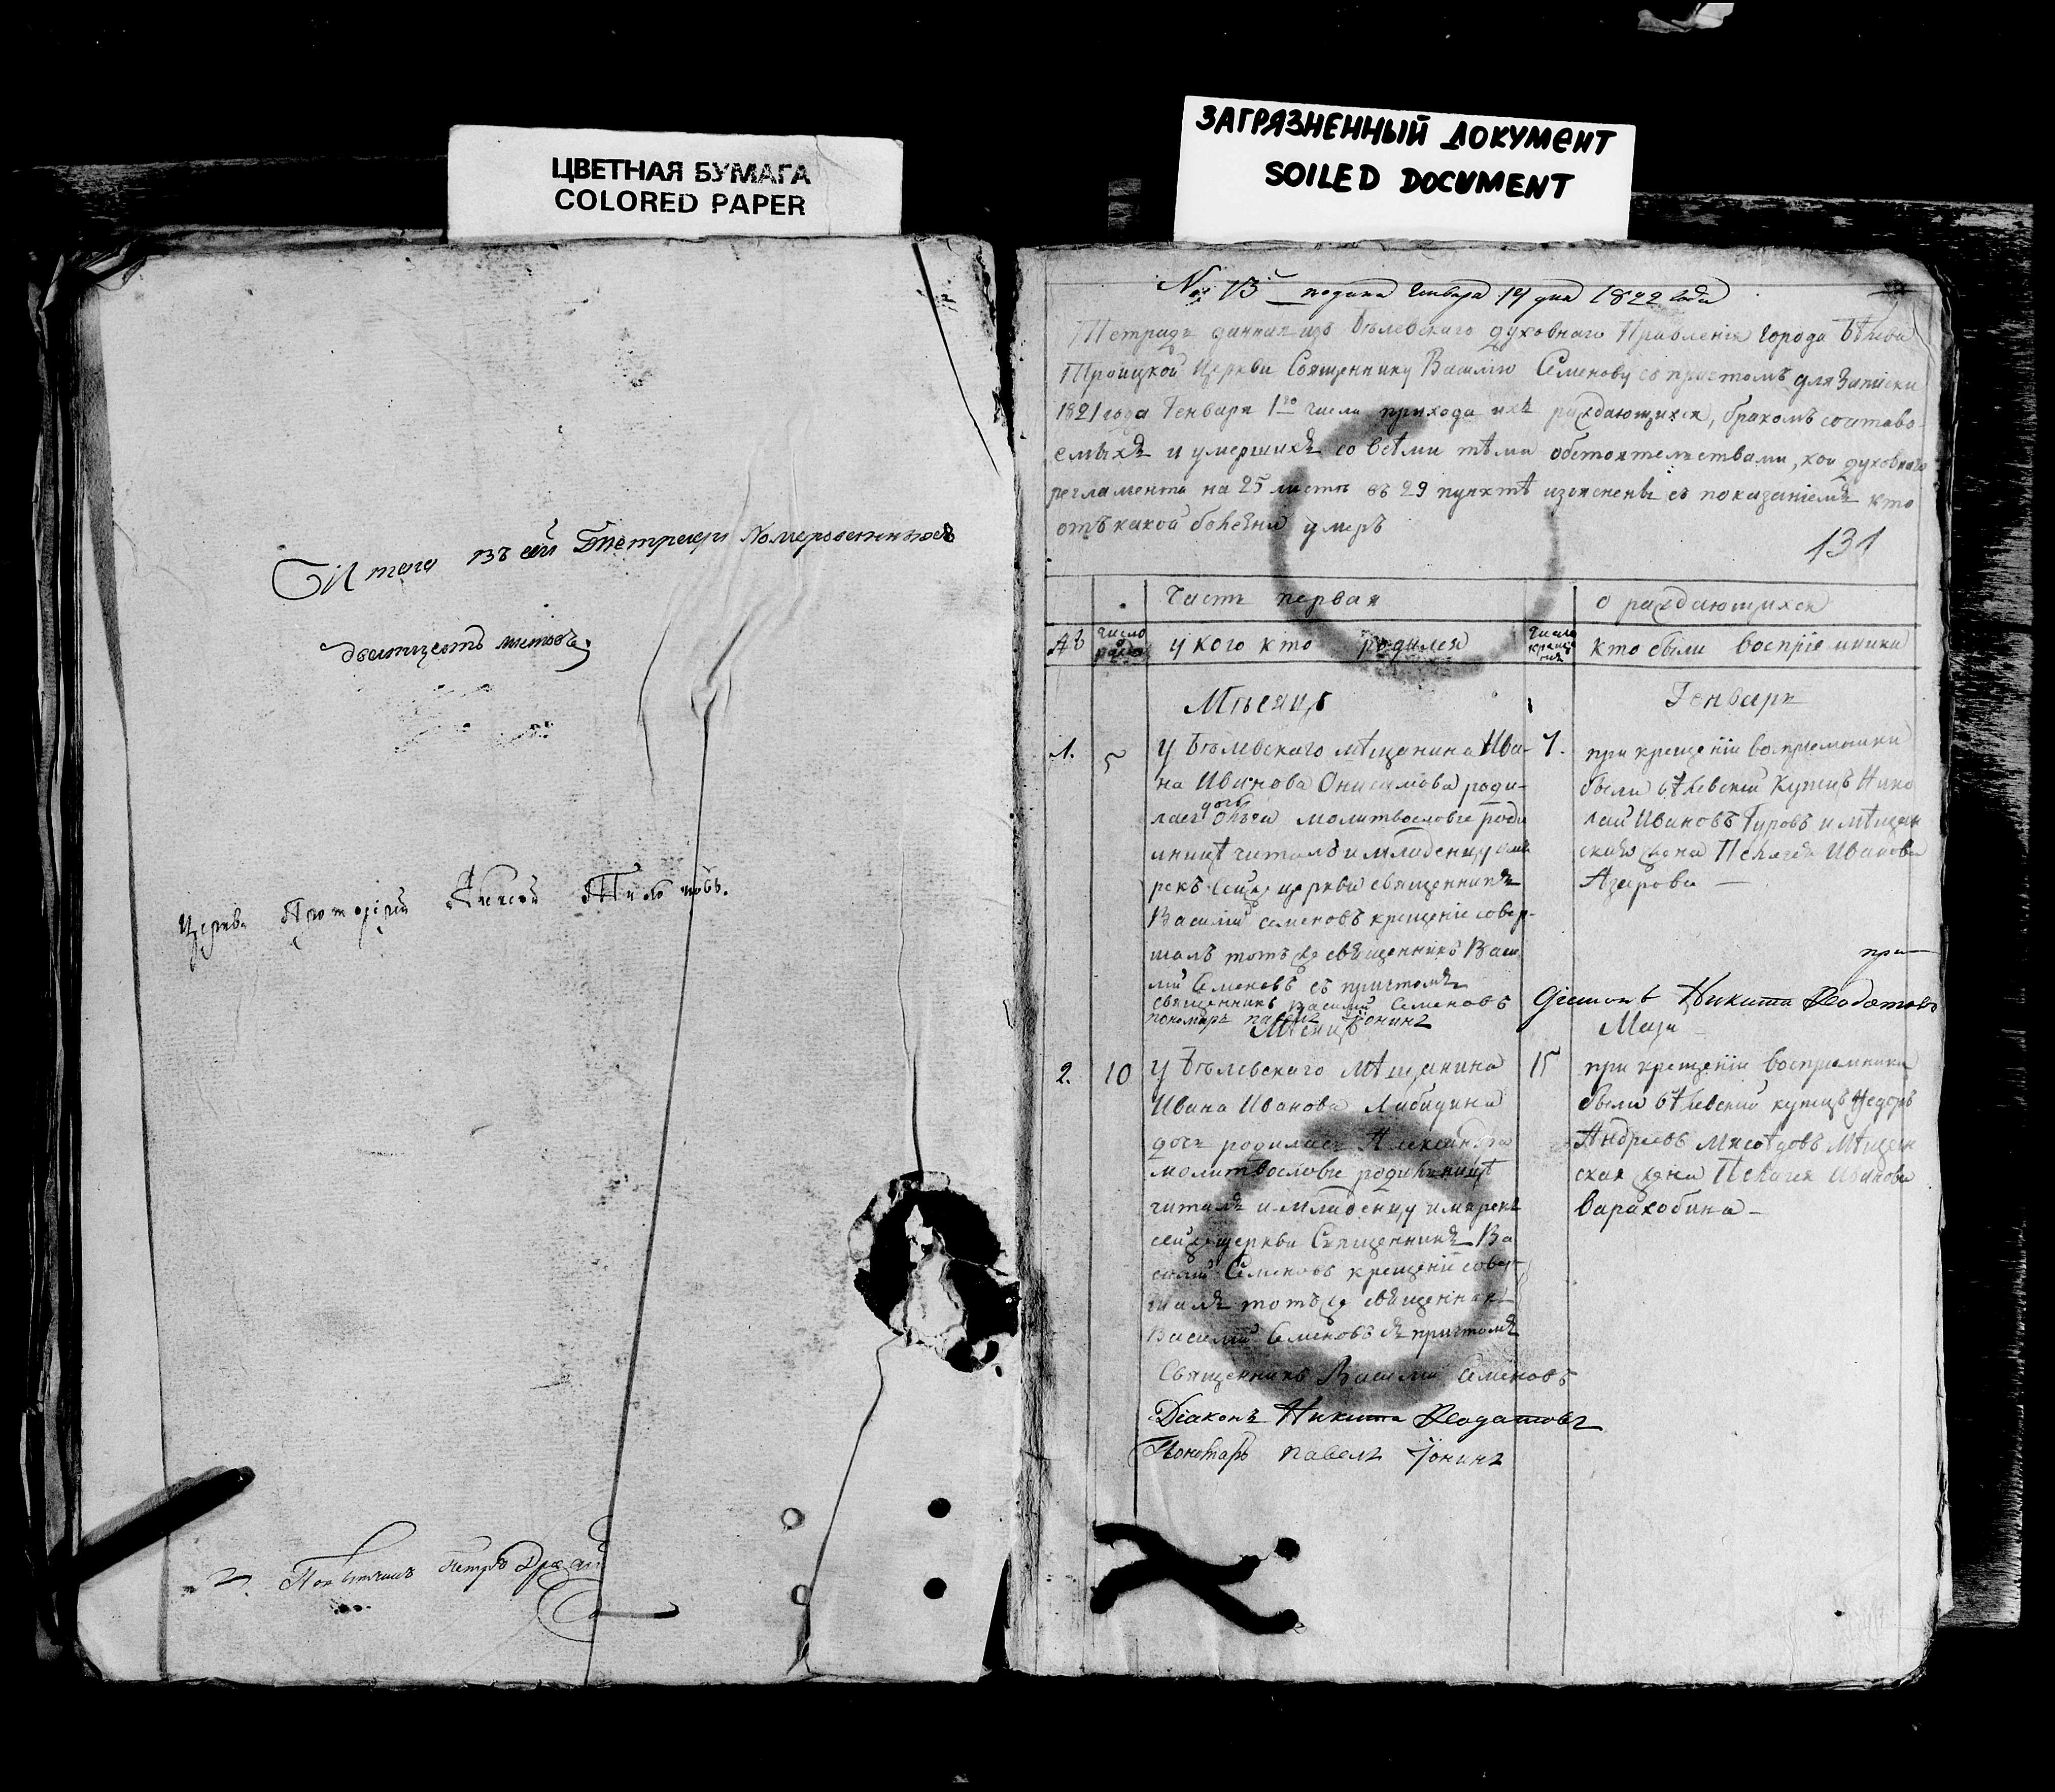 ЦВЕТНАЯ БУМАГА
COLORED PAPER
ЗАГРЯЗНЕННЫЙ ДОКУМЕНТ
SOILED DOCUMENT
Итого въ сей тетради
листовъ
Алексей
Петръ
подана Генваря дня 1822 года
Тетрадь данная изъ Бѣлевскаго духовнаго Правленія города Бѣлева
Троицкой Церкви Священнику Василию Семенову съ причтомъ для записки
1821 года Генваря 1го числа прихода ихъ раждающихся, бракомъ сочетава-
емыхъ и умершихъ со всѣми тѣми обстоятельствами, кои духовнаго
регламента на 25 листѣ въ 29 пунктѣ изъяснены съ показаніемъ кто
отъ какой болезни умеръ
131
Часть первая
о раждающихся
№
число
у кого кто родился
Число
креще
нія
кто были воспріемники
Мѣсяцъ
Генварь
1.
5
у Бѣлевскаго мѣщанина Ива-
на Иванова Онисимова роди-
дочь
лась молитвословіе роди
лницѣ читалъ и младенцу
рекъ сей же церкви священникъ
Василий Семеновъ крещеніе совер-
шалъ тотъ же священникъ Васи
лий Семеновъ съ причтомъ
священникъ Василий Семеновъ
пономарь павелъ Іонинъ
7.
при крещеніи воспріемники
были бѣлевский купецъ Нико
лай Ивановъ Гуровъ и мѣщан
ская жена Пелагея Иванова
при
Диаконъ Никита
Мѣсяцъ
Маія
2.
10
у Бѣлевскаго мѣщанина
Ивана Иванова Лабидина
дочь родилась Александра
молитвословіе родильницѣ
читалъ и младенцу имя рекъ
сей же церкви Священникъ Ва
силий Семеновъ крещеніе совер-
шалъ тотъ же священникъ
Василий Семеновъ съ причтомъ
Священникъ Василий Семеновъ
Діаконъ Никита
Пономарь павелъ Іонинъ
15
при крещеніи воспріемники
были бѣлевский купецъ Федоръ
Андреевъ Мясоѣдовъ Мѣщан
ская жена Пелагея Иванова
Варахобина